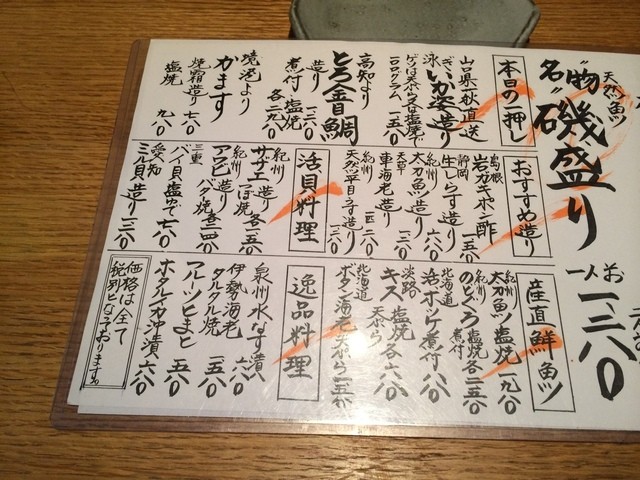 天然魚
名物
磯盛り
お一人
一三八〇
本日の一押し
山口県萩直送
泳ぎいか姿造り
ゲソは天ぷら又は塩焼で
一〇〇グラム 一一五〇
高知より
とろ金目鯛
造り 一二八〇
煮付・塩焼
各二九八〇
境港より
かます
焼霜造り 七八〇
塩焼 九八〇
おすすめ造り
島根
岩ガキポン酢 一一五〇
静岡
生しらす造り 六八〇
紀州
太刀魚造り 一二八〇
天草
車海老造り 一匹 一二八〇
紀州
天然平目うす造り 一二八〇
活貝料理
紀州
サザエ 造り つぼ焼 各一一五〇
紀州
アワビ 造り バター焼 各二四八〇
三重
バイ貝塩ゆで 七八〇
愛知
ミル貝造り 一三八〇
産直鮮魚
紀州
太刀魚塩焼 一一九八〇
紀州
のどぐろ 塩焼 煮付 各二一五〇
北海道
活ホッケ煮付 一八八〇
淡路
キス 塩焼 天ぷら 各六八〇
北海道
ボタン海老天ぷら 一一五〇
逸品料理
泉州水なす漬 六八〇
伊勢海老
タルタル焼 一一五〇
フルーツとまと 五八〇
ホタルイカ沖漬 六八〇
価格は全て
税別となっております。